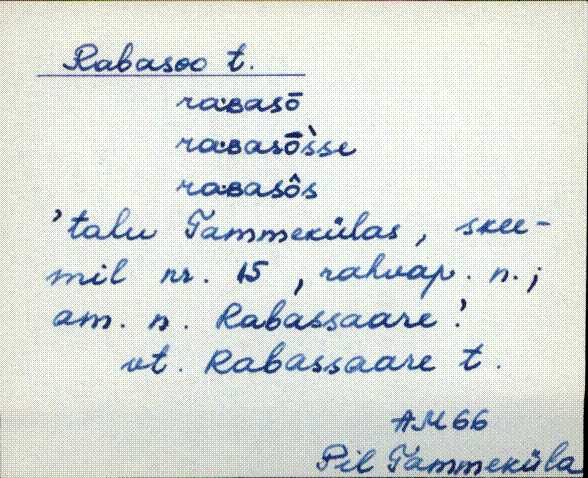 Rabasoo t.
raʙasō
raʙasṑsse
raʙasôs
'talu Tammekülas, skee-
mil nr. 15, rahvap. n.;
am. n. Rabassaare.'
vt. Rabassaare t.
AM 66
Pil Tammeküla